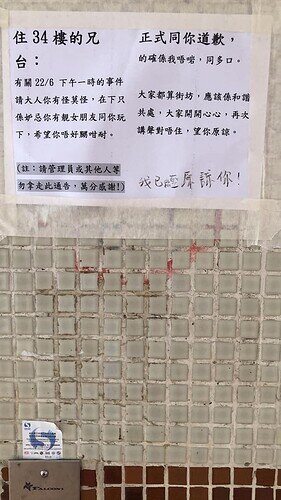 住 34 樓的兄
台：
有關 22/6 下午一時的事件
請大人你有怪莫怪，在下只
係妒忌你有靚女朋友同你玩
下，希望你唔好嬲咁耐。
(註：請管理員或其他人等
勿拿走此通告，萬分感謝!)
正式同你道歉，
的確係我唔啱，同多口。
大家都算街坊，應該係和諧
共處，大家開開心心，再次
講聲對唔住，望你原諒。
我已經原諒你！